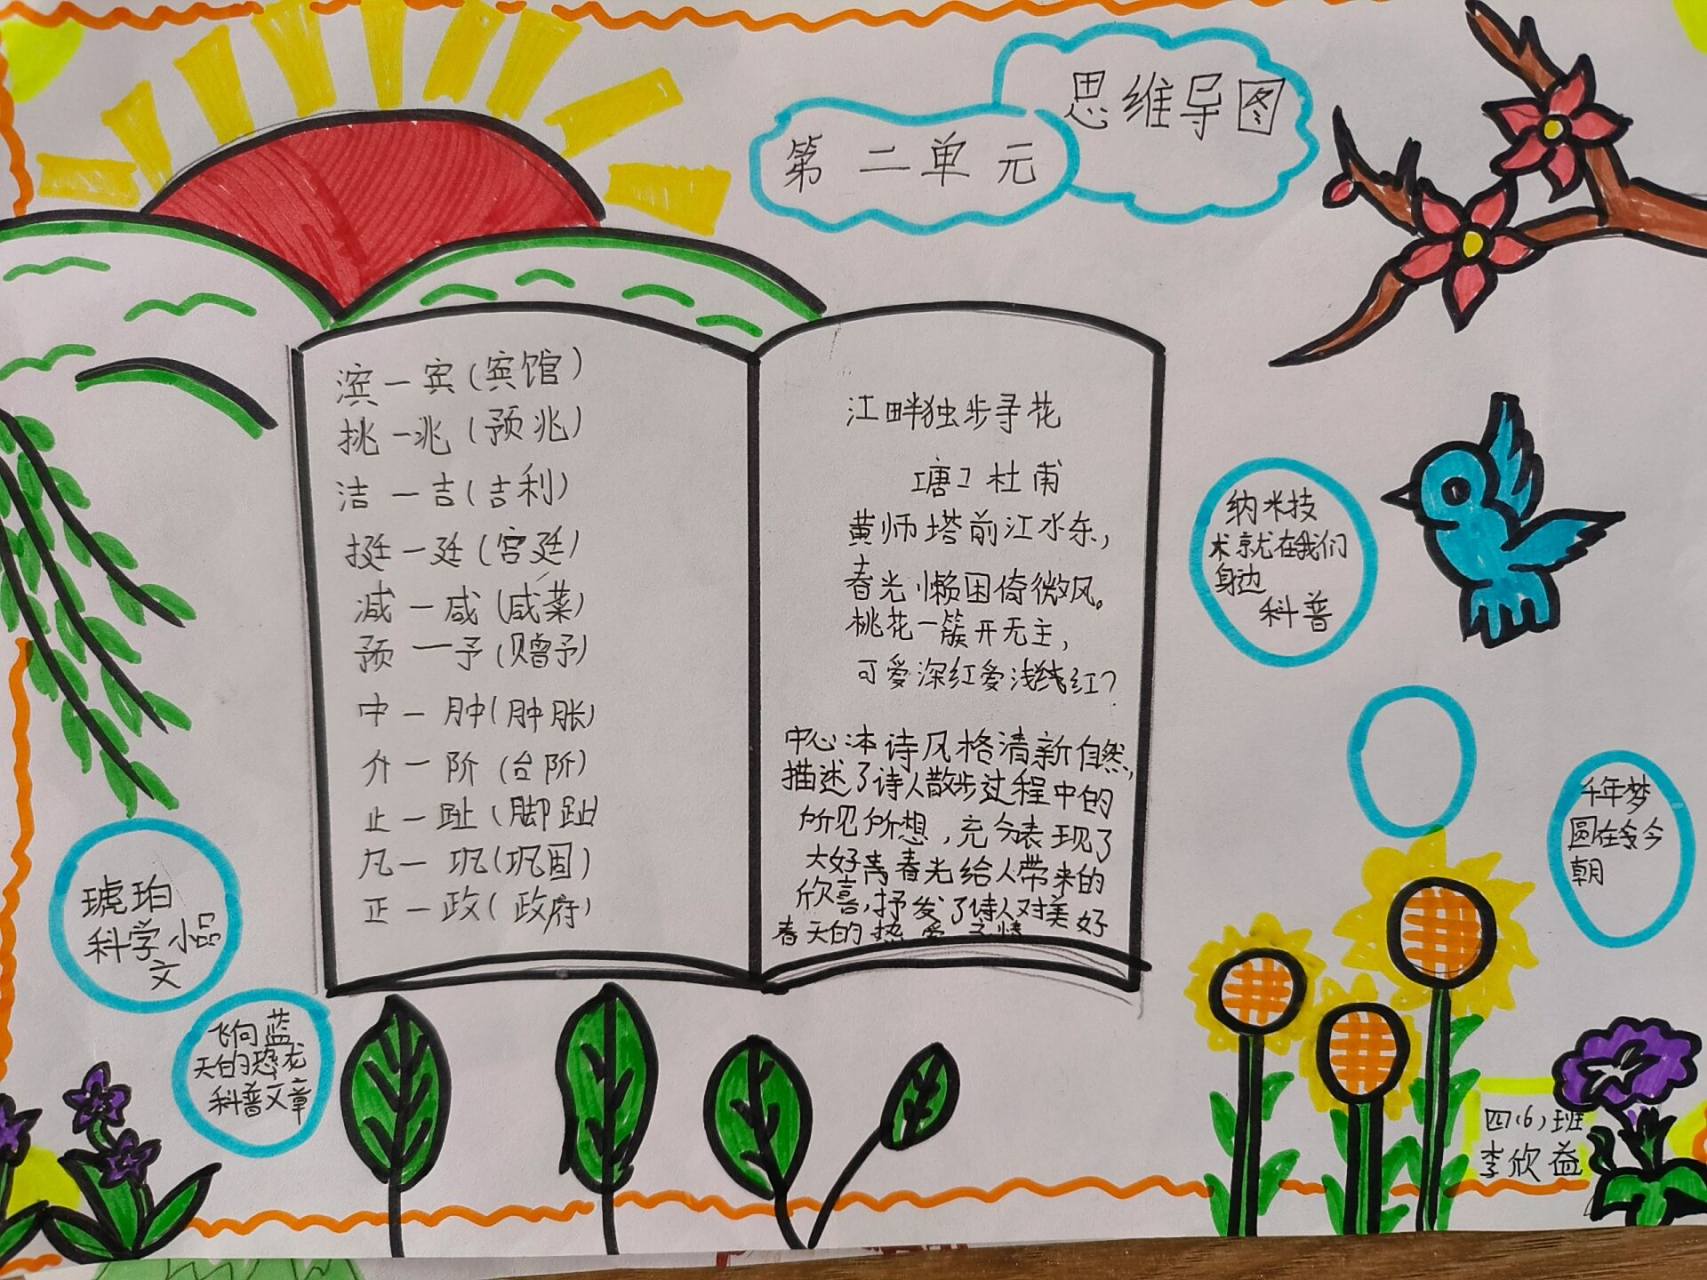 第二单元
思维导图
滨一宾(宾馆)
挑一兆(预兆)
洁一吉(吉利)
挺一廷(宫廷)
减一咸(咸菜)
预一予(赠予)
中一肿(肿胀)
介一阶(台阶)
止一趾(脚趾
凡一巩(巩固)
正一政(政府)
江畔独步寻花
[唐]杜甫
黄师塔前江水东,
春光懒困倚微风。
桃花一簇开无主,
可爱深红爱浅红?
中心:本诗风格清新自然,
描述了诗人散步过程中的
所见所想,充分表现了
大好春光给人带来的
欣喜,抒发了诗人对美好
春天的热爱之情
纳米技
术就在我们
身边
科普
千年梦
圆在今
朝
琥珀
科学小品
文
飞向蓝
天的恐龙
科普文章
四(6)班
李欣益